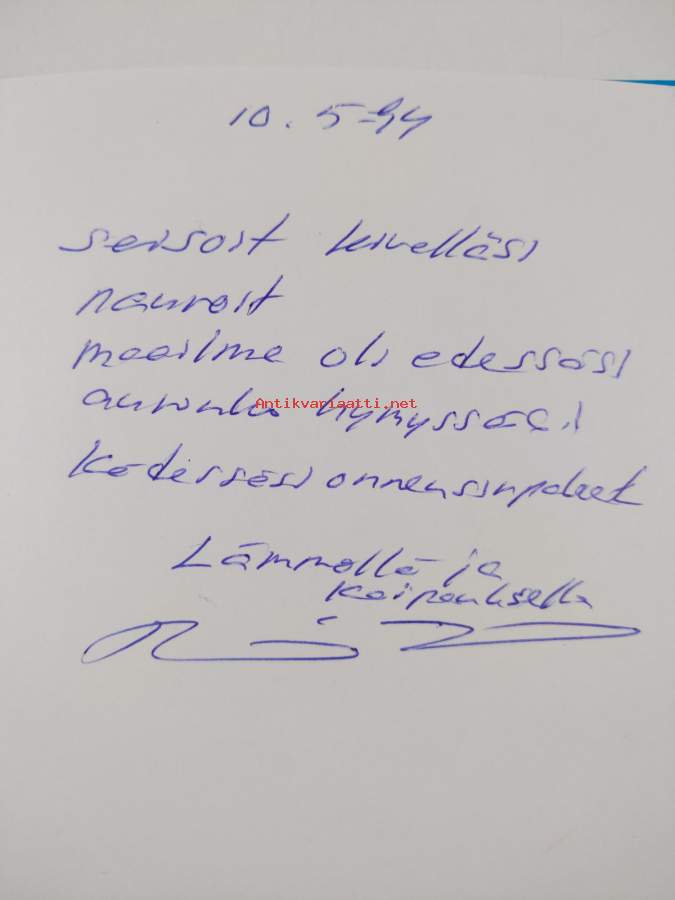 10.5-94
seisoit kivelläsi
nauroit
maailma oli edessäsi
aurinko hymyssäsi
Antikvariaatti.net
kädessäsi onnensirpaleet
Lämmöllä ja
kaipauksella